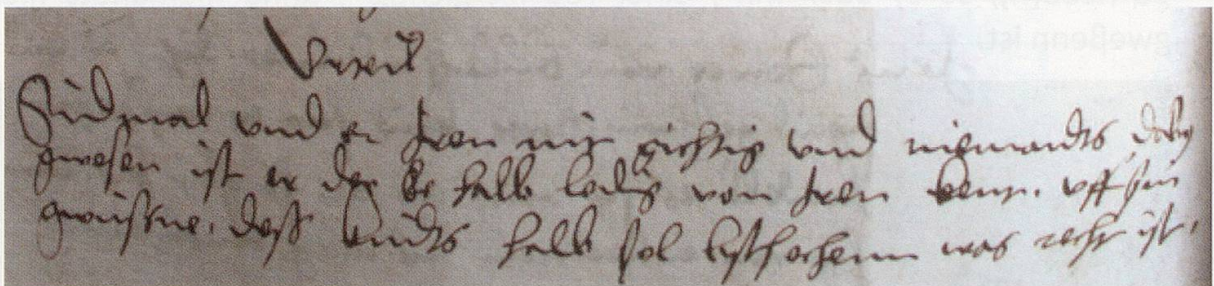 Urteil
Sidmal und er iren nit gichtig und niemandts daby
gwesen ist er der Ee halb ledig von iren kent. uff sin
gwüssne. deß kindts halb sol bschechenn was recht ist.